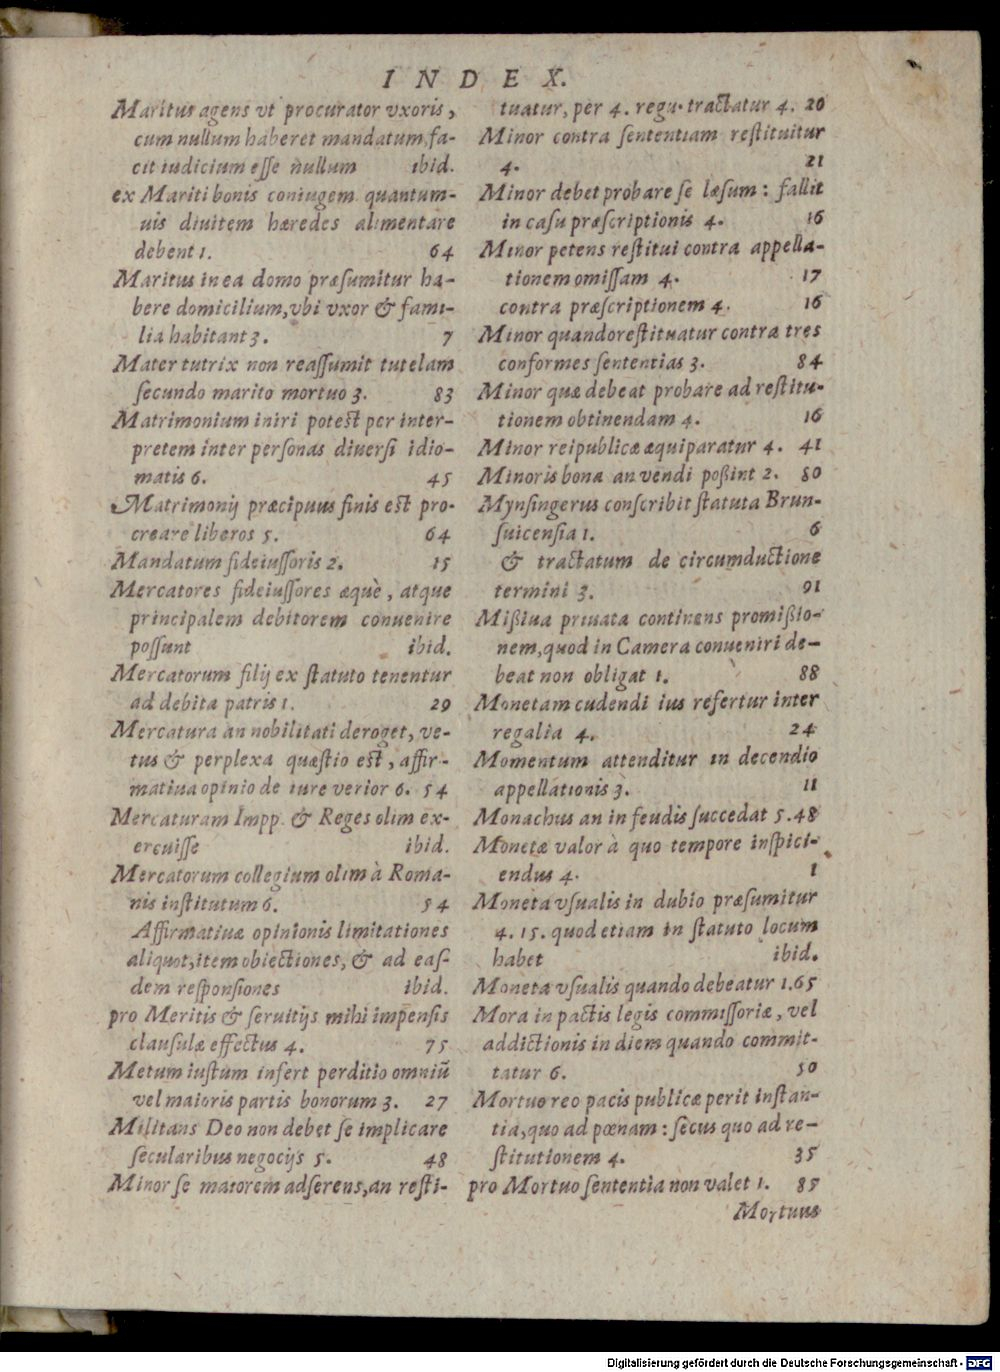 INDEX.
Maritus agens vt procurator vxoris,
cum nullum haberet mandatum, fa-
cit iudicium esse nullum ibid.
ex Mariti bonis coniugem quantum-
uis diuitem hæredes alimentare
debent 1. 64
Maritus in ea domo præsumitur ha-
bere domicilium, vbi vxor & fami-
lia habitant 3. 7
Mater tutrix non reassumit tutelam
secundo marito mortuo 3. 83
Matrimonium iniri potest per inter-
pretem inter personas diuersi idio-
matis 6. 45
Matrimonij præcipuus finis est pro-
creare liberos 5. 64
Mandatum fideiussoris 2. 15
Mercatores fideiussores æquè, atque
principalem debitorem conuenire
possunt ibid.
Mercatorum filij ex statuto tenentur
ad debita patris 1. 29
Mercatura an nobilitati deroget, ve-
tus & perplexa quæstio est, affir-
matiua opinio de iure verior 6. 54
Mercaturam Impp. & Reges olim ex-
ercuisse ibid.
Mercatorum collegium olim à Roma-
nis institutum 6. 54
Affirmatiuæ opinionis limitationes
aliquot, item obiectiones, & ad eas-
dem responsiones ibid.
pro Meritis & seruitijs mihi impensis
clausulæ effectus 4. 75
Metum iustum infert perditio omniū
vel maioris partis bonorum 3. 27
Militans Deo non debet se implicare
secularibus negocijs 5. 48
Minor se maiorem adserens, an resti-
tuatur, per 4. regu. tractatur 4. 20
Minor contra sententiam restituitur
4. 21
Minor debet probare se læsum: fallit
in casu præscriptionis 4. 16
Minor petens restitui contra appella-
tionem omissam 4. 17
contra præscriptionem 4. 16
Minor quando restituatur contra tres
conformes sententias 3. 84
Minor quæ debeat probare ad restitu-
tionem obtinendam 4. 16
Minor reipublicæ æquiparatur 4. 41
Minoris bona an vendi poßint 2. 80
Mynsingerus conscribit statuta Brun-
suicensia 1. 6
& tractatum de circumductione
termini 3. 91
Mißiua priuata continens promißio-
nem, quod in Camera conueniri de-
beat non obligat 1. 88
Monetam cudendi ius refertur inter
regalia 4. 24
Momentum attenditur in decendio
appellationis 3. 11
Monachus an in feudis succedat 5. 48
Monetæ valor à quo tempore inspici-
endus 4. 1
Moneta vsualis in dubio præsumitur
4. 15. quod etiam in statuto locum
habet ibid.
Moneta vsualis quando debeatur 1. 65
Mora in pactis legis commissoriæ, vel
addictionis in diem quando commit-
tatur 6. 50
Mortuo reo pacis publicæ perit instan-
tia, quo ad pœnam: secus quo ad re-
stitutionem 4. 35
pro Mortuo sententia non valet 1. 85
Mortuus
Digitalisierung gefördert durch die Deutsche Forschungsgemeinschaft - DFG